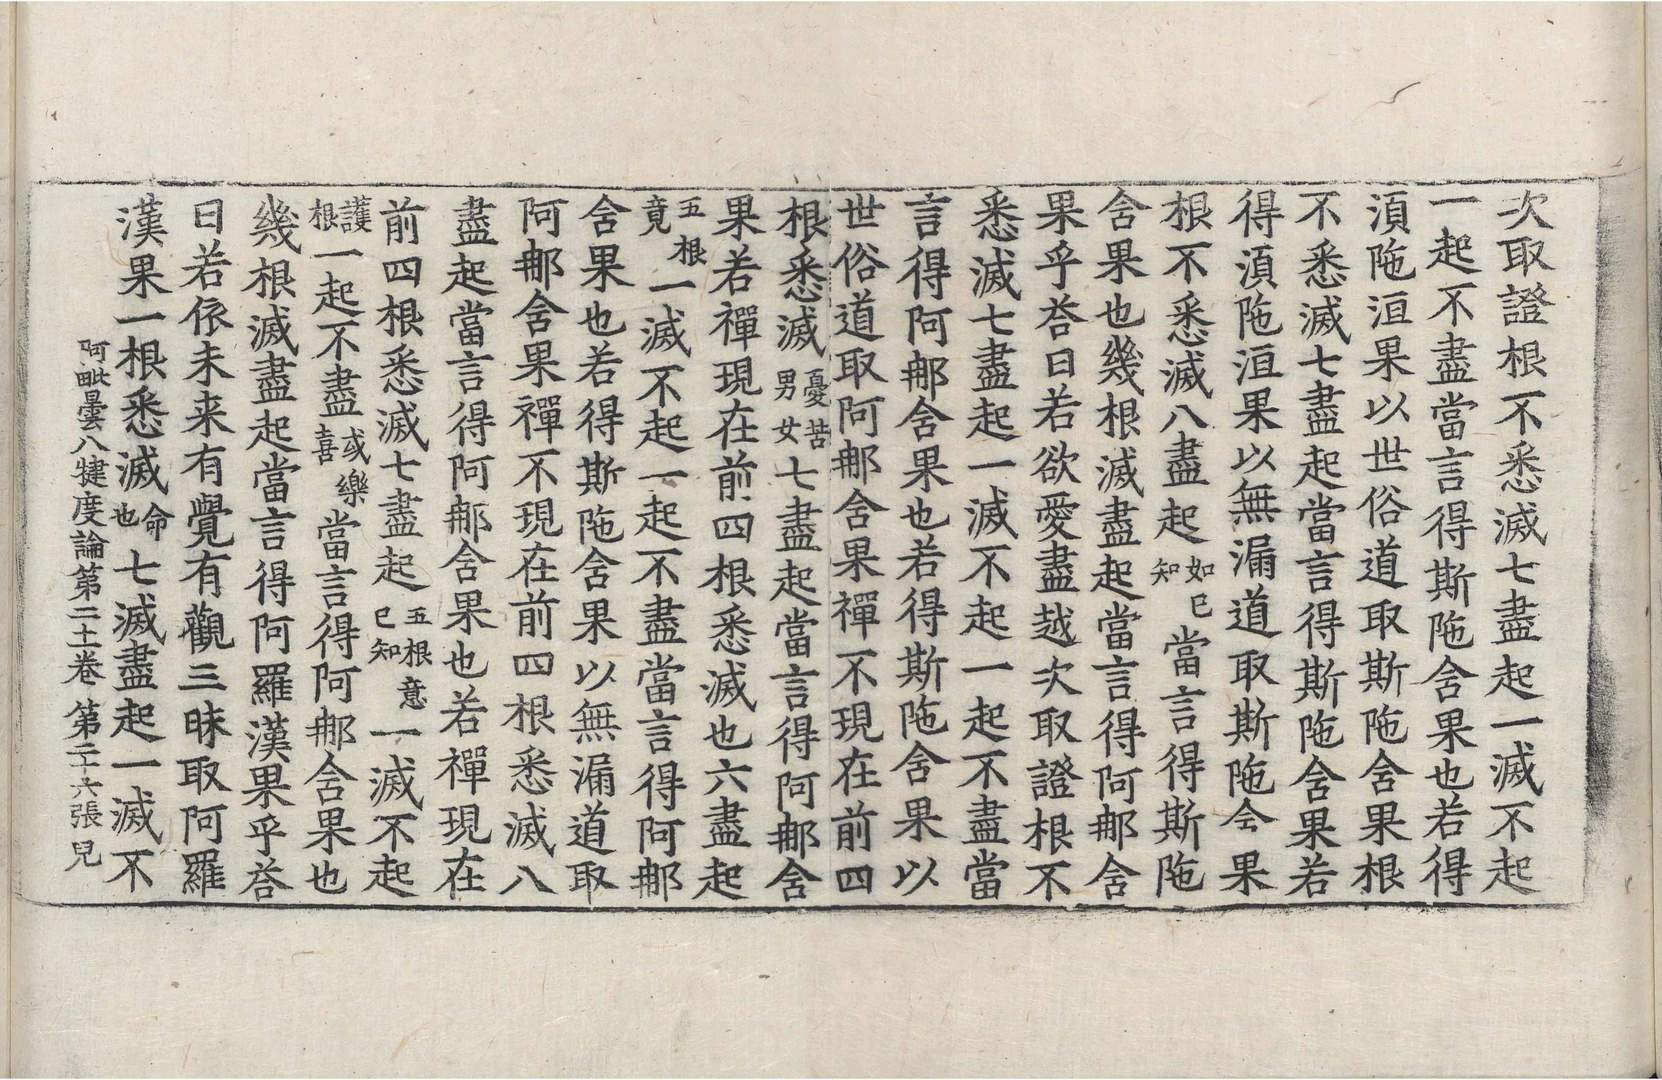 次取證根不悉滅七盡起一滅不起
一起不盡當言得斯陁含果也若得
湏陁洹果以世俗道取斯陁含果根
不悉滅七盡起當言得斯陁含果若
得湏陁洹果以無漏道取斯陁含果
根不悉滅八盡起如已知當言得斯陁
含果也幾根滅盡起當言得阿那含
果乎荅曰若欲愛盡越次取證根不
悉滅七盡起一滅不起一起不盡當
言得阿那含果也若得斯陁含果以
世俗道取阿那含果禪不現在前四
根悉滅憂苦男女七盡起當言得阿那含
果若禪現在前四根悉滅也六盡起
五根竟一滅不起一起不盡當言得阿那
含果也若得斯陁含果以無漏道取
阿那含果禪不現在前四根悉滅八
盡起當言得阿那含果也若禪現在
前四根悉滅七盡起五根意已知一滅不起
護根一起不盡或樂喜當言得阿那含果也
幾根滅盡起當言得阿羅漢果乎荅
曰若依未来有覺有觀三昧取阿羅
漢果一根悉滅命也七滅盡起一滅不
阿毗曇八犍度論第二十卷 第二十六張 兒